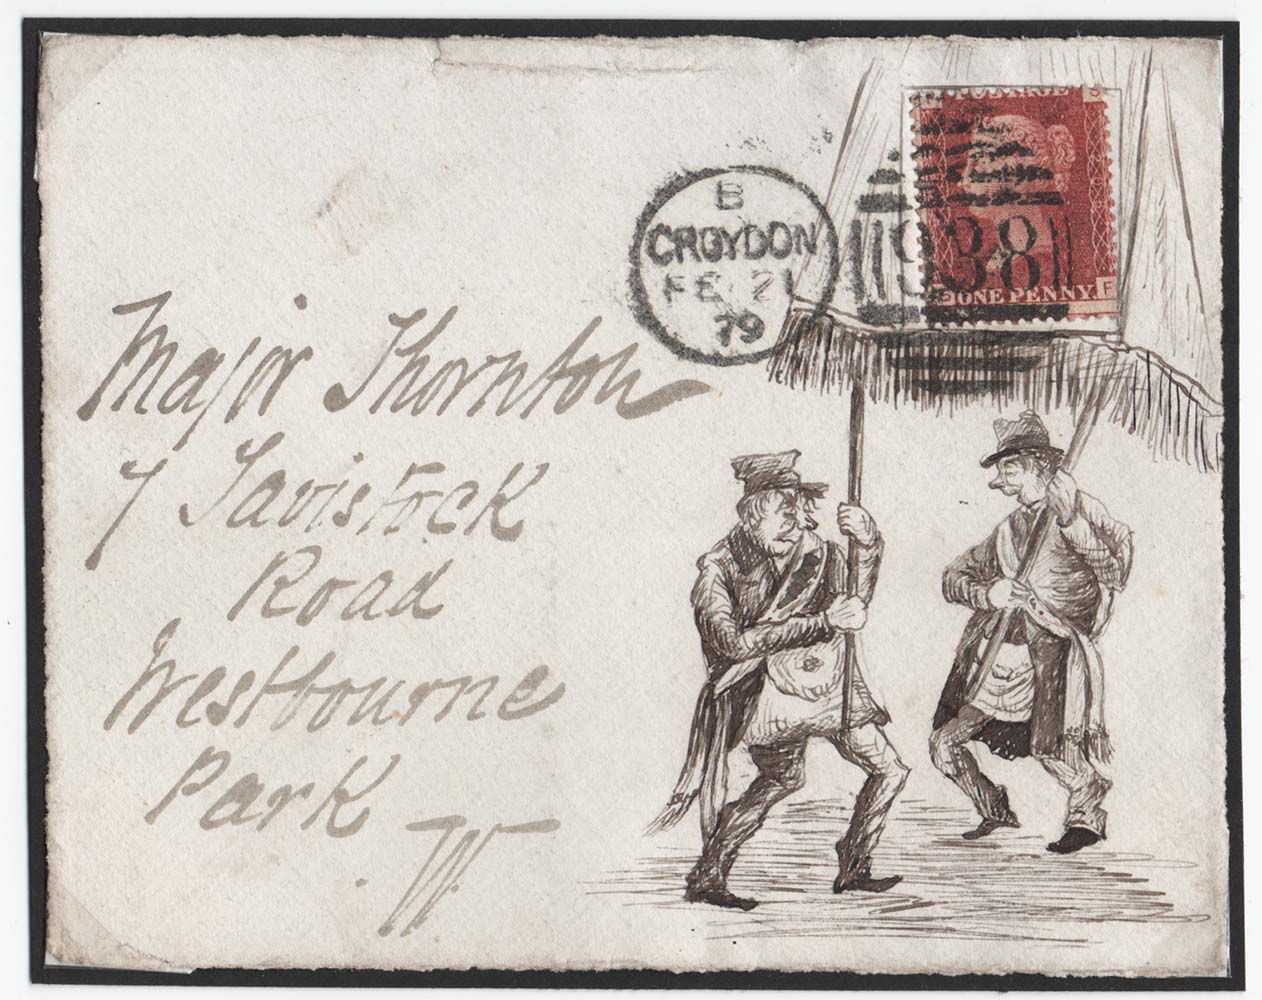 B
CROYDON
FE 21
79
938
POSTAGE
ONE PENNY.
F
Major Thornton
7 Tavistock
Road
Westbourne
Park
W.